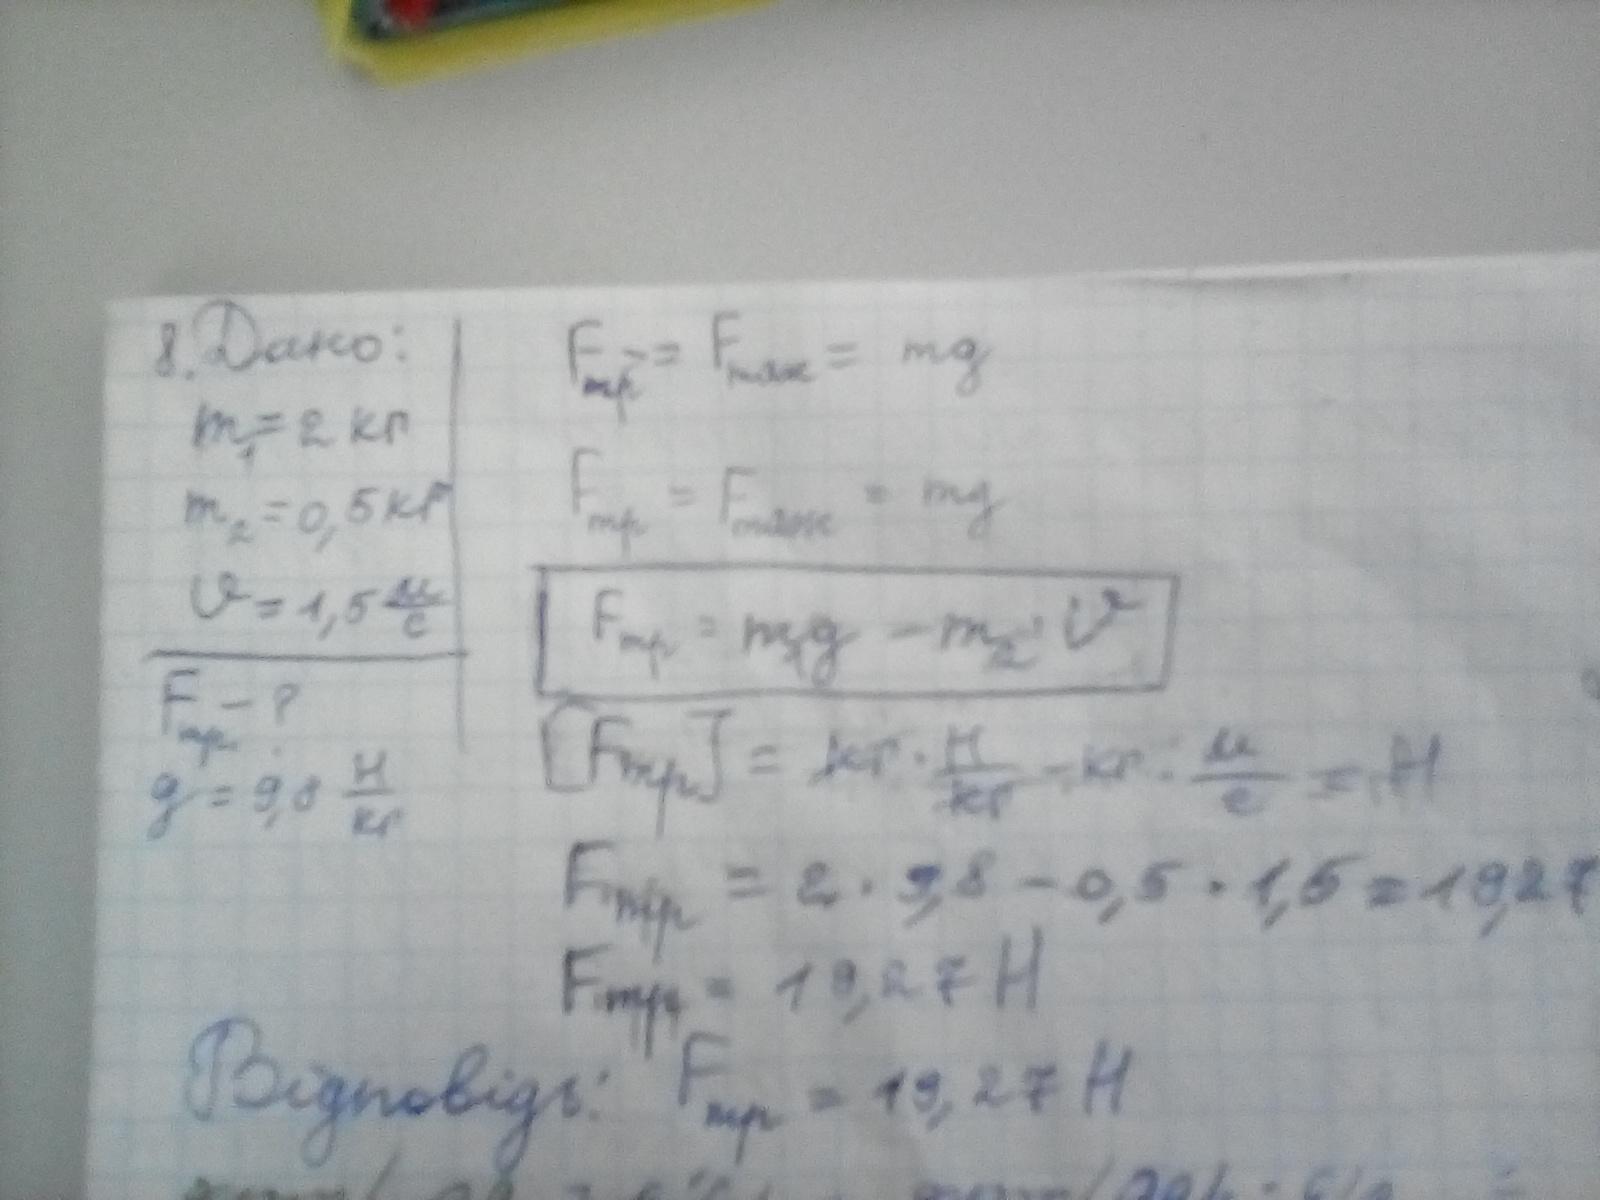 8. Дано:
m₁ = 2 кг
m₂ = 0,5 кг
v = 1,5 м/с
Fтр - ?
g = 9,8 Н/кг
Fтр = Fтяж = mg
Fтр = Fтяж = mg
Fтр = m₁g - m₂ · v
[Fтр] = кг · Н/кг - кг · м/с = Н
Fтр = 2 · 9,8 - 0,5 · 1,5 = 19,27
Fтр = 19,27 Н
Відповідь: Fтр = 19,27 Н